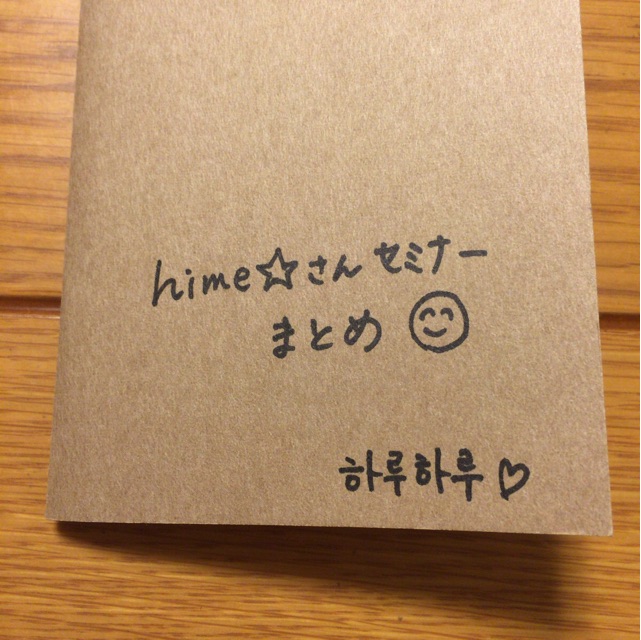 hime☆さん セミナー
まとめ
하루하루♡